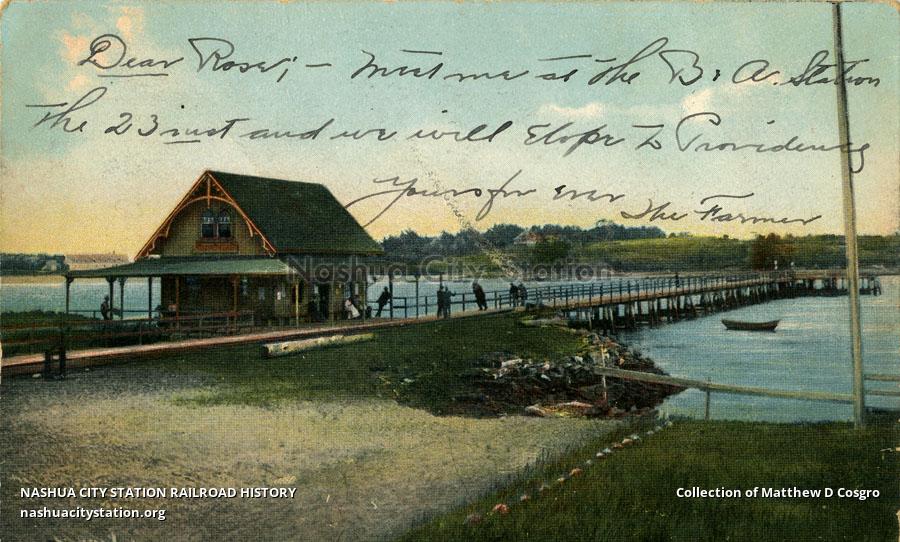 Dear Rose; - Meet me at the B & A. Station
the 23 inst and we will Elope to Providence
Yours for ever The Farmer
Nashua City Station
NASHUA CITY STATION RAILROAD HISTORY
nashuacitystation.org
Collection of Matthew D Cosgro